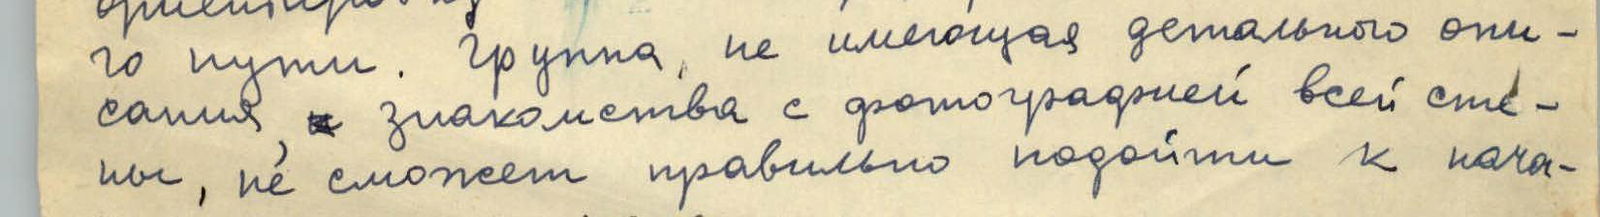 ориентировку
го пути. Группа, не имеющая детального опи-
сания, знакомства с фотографией всей сте-
ны, не сможет правильно подойти к нача-